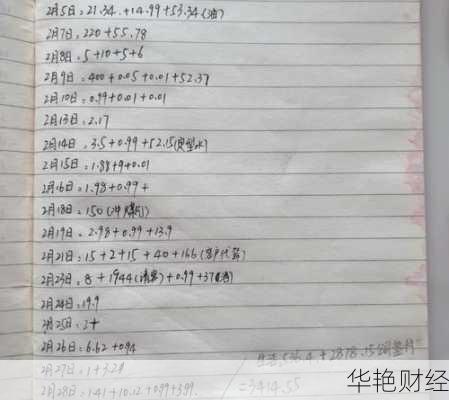 2月5日: 21.34.+14.99+53.34(油)
2月7日: 220+55.78
2月8日: 5+10+5+6
2月9日: 400+0.05+0.01+52.37
2月10日: 0.99+0.01+0.01
2月13日: 2.17
2月14日: 3.5+0.99+52.15(定型水)
2月15日: 1.88+9+0.01
2月16日: 1.98+0.99+
2月18日: 150(冲
2月19日: 2.98+0.99+13.9
2月21日: 15+2+15+40+166(客户代
2月23日: 8+1944(清
)+0.99+37
2月24日: 19.9
2月25日: 2+
2月26日: 6.62+0.94
2月27日: 1+3.24
2月28日: 1.41+10.12+0.99+3.99.
生活:536.4.+2878.15
=3414.55
华艳财经